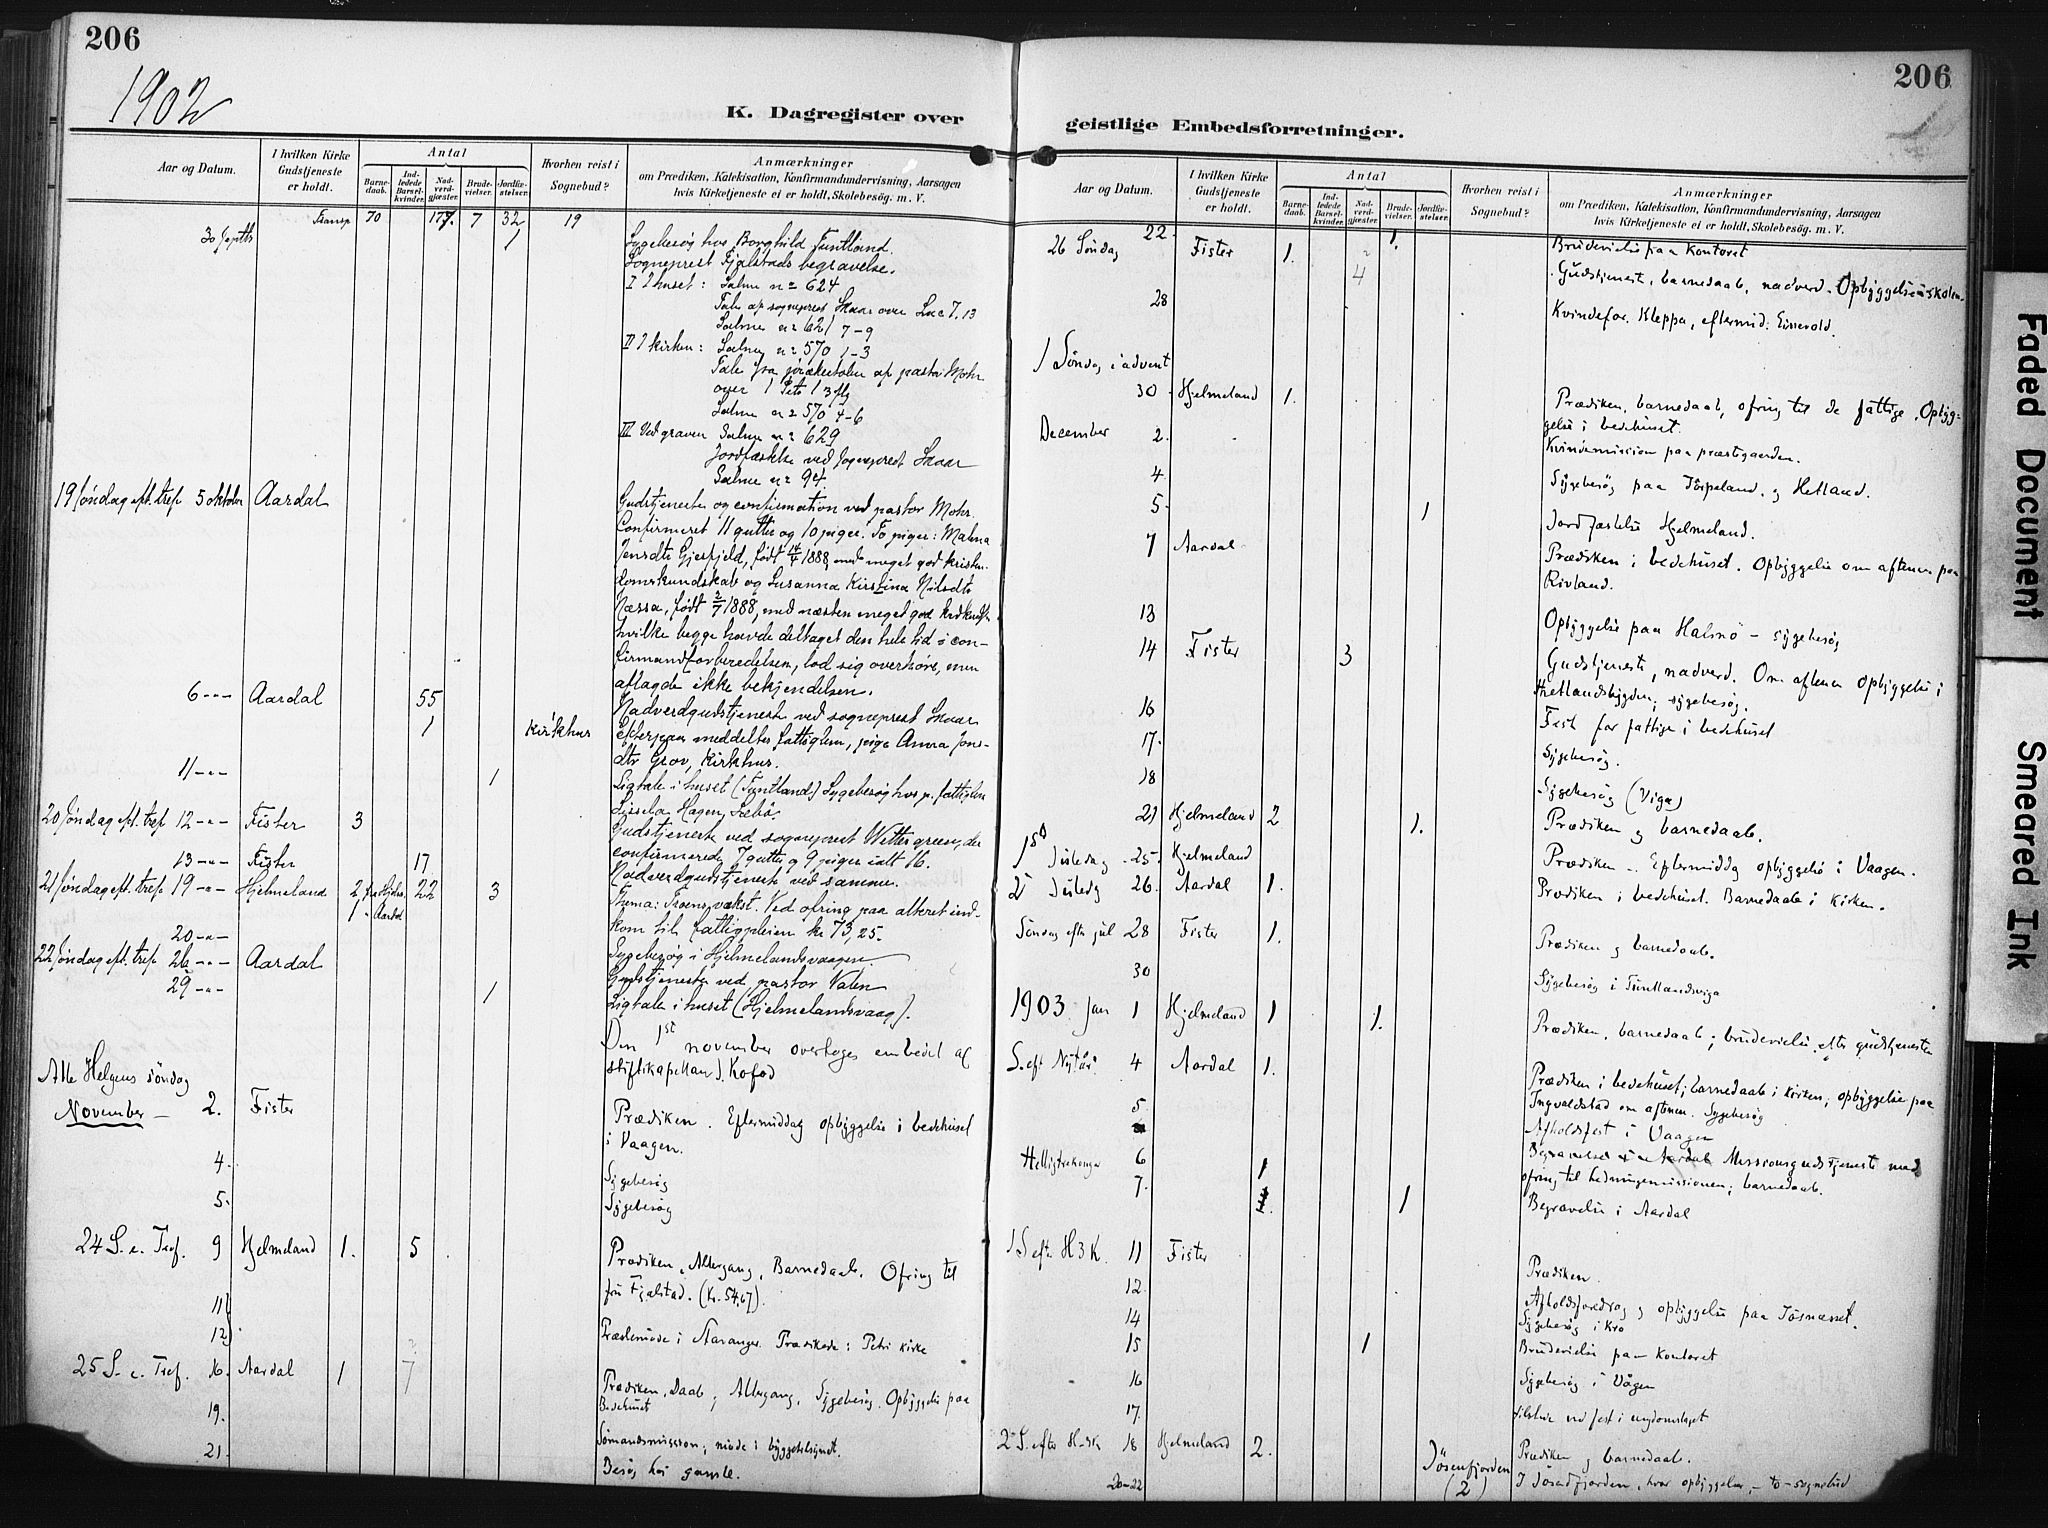 206
1902
K. Dagregister over
Aar og Datum.
I hvilken Kirke Gudstjeneste er holdt.
Antal
Barne-daab.
Ind-ledede Barsel-kvinder.
Nad-verd-gjæster.
Brude-vielser.
Jordfæ-stelser.
Hvorhen reist i Sognebud?
Anmærkninger
om Prædiken, Katekisation, Konfirmandundervisning, Aarsagen
hvis Kirketjeneste ei er holdt, Skolebesøg. m. V.
Transp 70 177. 7 32 19
30 septb 1 Sygebesøg hos Borghild Tuntland.
Sogneprest Fjalstads begravelse.
I I huset: Salme no 624
Tale af sogneprest Skaar over Luc 7, 13
Salme no 621 7-9
II I kirken: Salme no 570 1-3
Tale fra prækestolen af pastor Mohr
over 1 Pet. 1 3 flg
Salme no 570 4-6
III Ved graven Salme no 629
Jordfæstelse ved sogneprest Skaar
Salme no 94
19 søndag eft. tref 5 oktober Aardal Gudstjeneste og confirmation ved pastor Mohr.
Confirmeret 11 gutter og 10 piger. To piger: Malena
Jensdtr Gjerfjeld, født 14/4 1888, med meget god kristen-
domskundskab og Susanna Kirstina Nilsdtr
Næssa, født 2/7 1888, med næsten meget god krdkundsk.
hvilke begge havde deltaget den hele tid i con-
firmandforberedelsen, lod sig overhøre, men
aflagde ikke bekjendelsen.
6 -"- Aardal 55 Nadverdgudstjeneste ved sogneprest Skaar
1 Kirkhus Efterpaa meddeltes fattiglem, pige Anna Jons-
dtr Grov, Kirkhus.
11 -"- 1 Ligtale i huset (Tuntland) Sygebesøg hos p. fattiglem
Lisseba Hagen, Sæbø.
20 søndag eft. tref 12 -"- Fister 3 Gudstjeneste ved sogneprest Wettergreen, der
confirmerede 7 gutter og 9 piger ialt 16.
13 -"- Fister 17 Nadverdgudstjeneste ved samme.
21 søndag eft. tref 19 -"- Hjelmeland 2 fra Hjelm. 22 3 Thema: Troens vækst. Ved ofring paa alteret ind-
1 - Aardal kom til fattigpleien kr 73,25.
20 -"- Sygebesøg i Hjelmelandsvaagen.
22 søndag eft. tref 26 -"- Aardal Gudstjeneste ved pastor Valen
29 -"- 1 Ligtale i huset (Hjelmelandsvaag).
Den 1st november overtoges embedet af
stiftskapellan J. Kofod
Alle Helgens søndag
November - 2. Fister Prædiken. Eftermiddag opbyggelse i bedehuset
i Vaagen.
4. Sygebesøg
5. Sygebesøg
24 S. e. Tref. 9 Hjelmeland 1. 5 Prædiken, Altergang, Barnedaab. Ofring til
fru Fjalstad. (Kr. 54,67).
11
12 Præstemøde i Stavanger. Prædikede: Petri kirke
25 S. e. Tref. 16. Aardal 1 7 Prædiken, Daab, Altergang, Sygebesøg. Opbyggelse paa
Bedehuset
19. Sømandsmission; møde i
21. Besøg hos gamle.
206
geistlige Embedsforretninger.
Aar og Datum.
I hvilken Kirke Gudstjeneste er holdt.
Antal
Barne-daab.
Ind-ledede Barsel-kvinder.
Nad-verd-gjæster.
Brude-vielser.
Jordfæ-stelser.
Hvorhen reist i Sognebud?
Anmærkninger
om Prædiken, Katekisation, Konfirmandundervisning, Aarsagen
hvis Kirketjeneste ei er holdt, Skolebesøg. m. V.
22. 1. Brudevielse paa kontoret
26 Søndag Fister 1. 4 Gudstjeneste, barnedaab, nadverd. Opbyggelse i skolen.
28 Kvindefor. Kleppa, eftermid:
1 Søndag i advent
30 Hjelmeland 1. Prædiken, barnedaab, ofring til de fattige. Opbyg-
gelse i bedehuset.
December 2. Kvindemission paa præstegaarden.
4. Sygebesøg paa Tøpeland og Hetland.
5. 1 Jordfæstelse Hjelmeland.
7 Aardal Prædiken i bedehuset. Opbyggelse om aftenen paa
Rivland.
13 Opbyggelse paa Halsnø - sygebesøg
14 Fister 3 Gudstjeneste, nadverd. Om aftenen opbyggelse i
Hetlandsbygden; sygebesøg.
16 Fest for fattige i bedehuset
17. Sygebesøg.
18 Sygebesøg (Viga)
21 Hjelmeland 2 1. Prædiken og barnedaab.
1st Juledag 25. Hjelmeland Prædiken. Eftermiddag opbyggelse i Vaagen.
2 Juledag 26. Aardal 1. Prædiken i bedehuset. Barnedaab i kirken.
Søndag efter jul 28 Fister 1. Prædiken og barnedaab.
30 Sygebesøg i Tuntlandsviga
1903 Jan 1 Hjelmeland 1 1. Prædiken, barnedaab; brudevielse efter gudstjenesten
S. eft Nytår 4 Aardal 1. Prædiken i bedehuset; barnedaab i kirken; opbyggelse paa
Ingvaldstad om aftenen. Sygebesøg
5 Afholdsfest i Vaagen
Helligtrekonger 6 1 Missionsgudstjeneste med
ofring til hedningemissionen; barnedaab.
7. 1 Begravelse i Aardal
1 S efter H3K. 11 Fister Prædiken.
12. Afholdsforedrag og opbyggelse paa Tøsnæsset.
14 Sygebesøg i Kro
15 1 Brudevielse paa kontoret
16 Sygebesøg i Vågen
17. Tilstede ved fest i ungdomslaget
2 S. efter H3K 18 Hjelmeland 2. Prædiken og barnedaab.
20-22 Jøsenfjorden (2) I Jøsenfjorden, hvor opbyggelser, - to sognebud
Faded Document
Smeared Ink